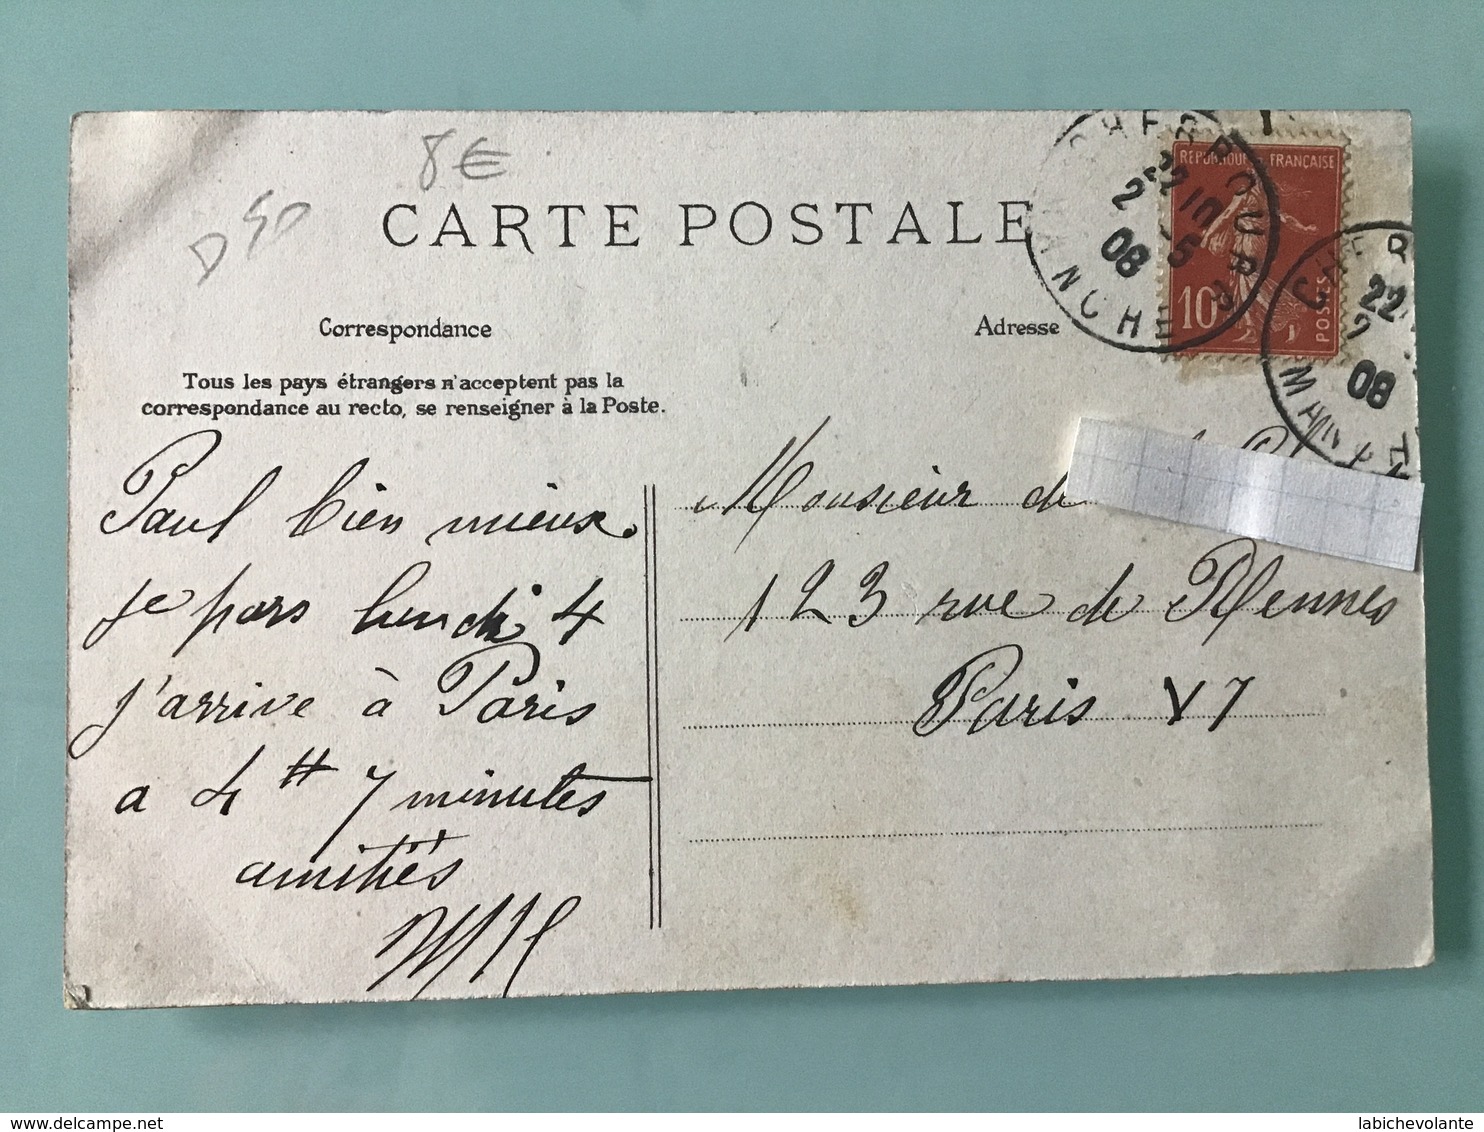 8€
D50
CARTE POSTALE
Correspondance
Adresse
Tous les pays étrangers n'acceptent pas la
correspondance au recto, se renseigner à la Poste.
RÉPUBLIQUE FRANÇAISE
10
POSTES
CHERBOURG
22 10
2 5
08
MANCHE
CHER
22
2
08
MAN
Paul bien mieux.
je pars lundi 4
j'arrive à Paris
a 4 H 7 minutes
amitiés
Monsieur de
123 rue de Rennes
Paris VI
labichevolante